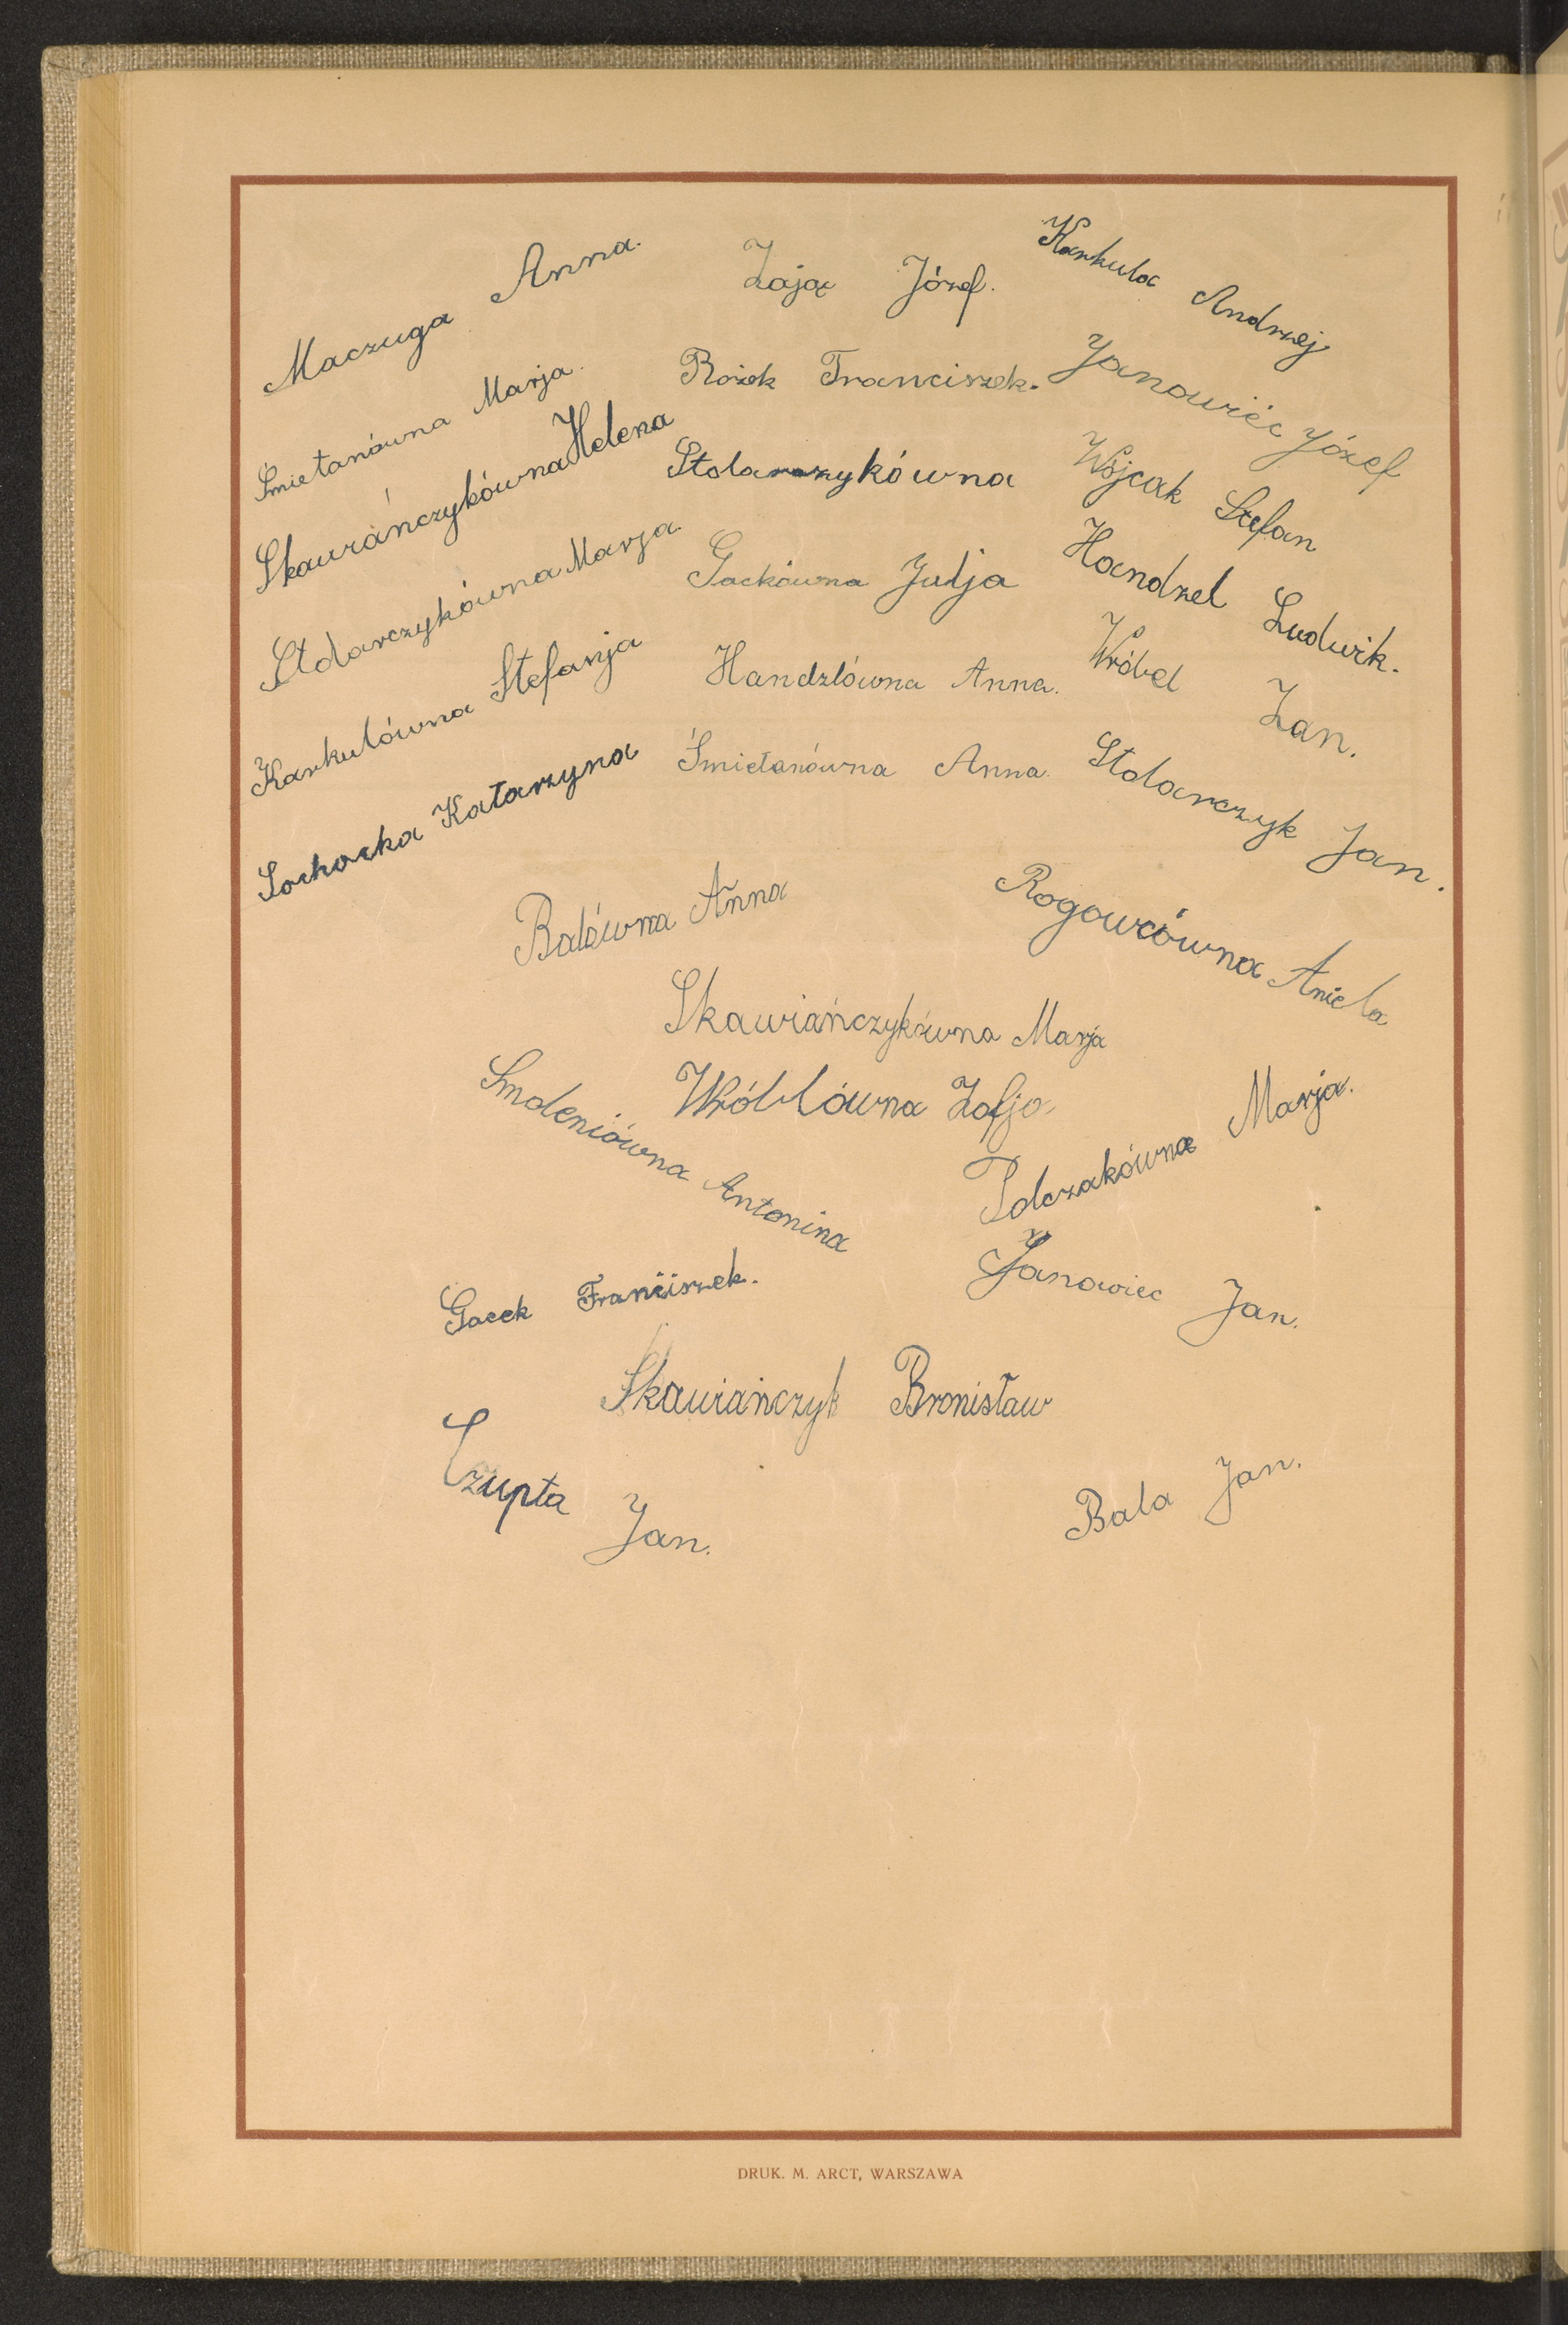 Maczuga Anna.
Zając Józef.
Karkula Andrzej
Śmietanówna Marja.
Rożek Franciszek.
Janowiéc Józef
Skawiańczykówna Helena
Stolarczykówna
Wójcak Stefan
Stolarczykówna Marja.
Gackówna Julja
Handzel Ludwik.
Karkulówna Stefanja
Handzlówna Anna.
Wróbel Jan.
Sochacka Katarzyna
Śmietanówna Anna.
Stolarczyk Jan.
Balówna Anna
Rogowcówna Aniela
Skawiańczykówna Marja
Wróblówna Zofja
Smoleniówna Antonina
Polczakówna Marja.
Gacek Franciszek.
Janowiec Jan.
Skawiańczyk Bronisław
Czupta Jan.
Bala Jan.
DRUK. M. ARCT, WARSZAWA